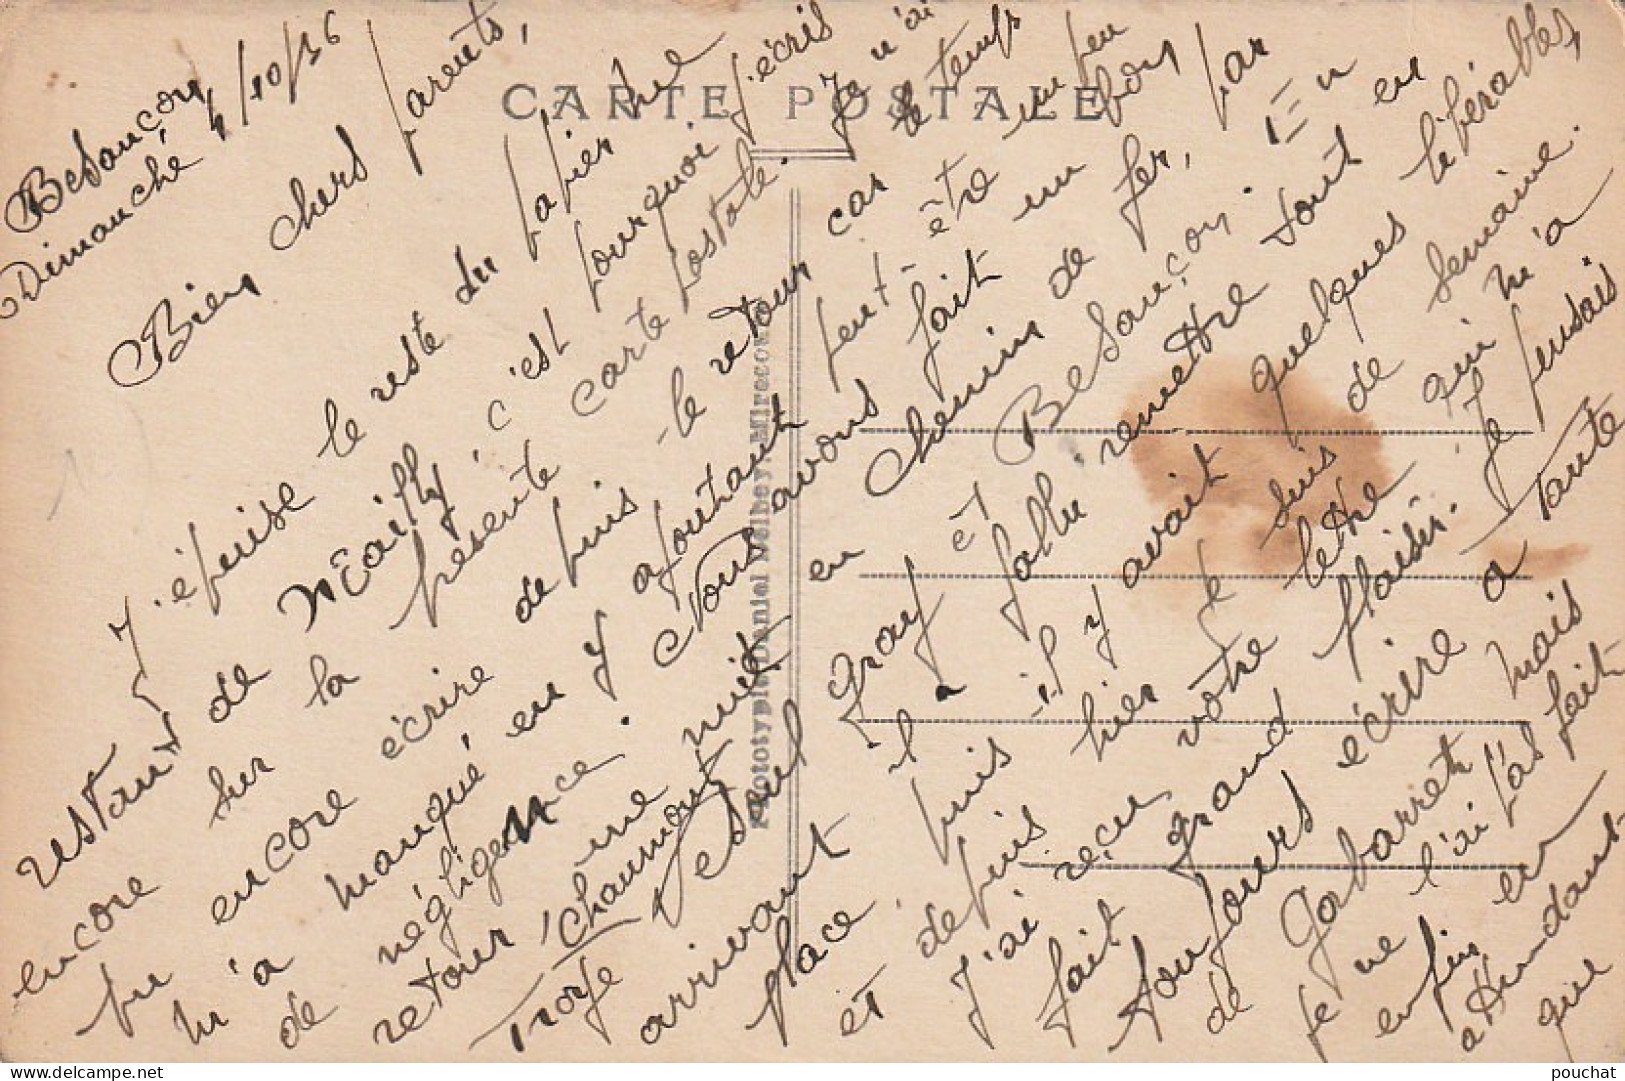 CARTE POSTALE
Phototypie Daniel Delbey, Mirecourt
Besançon,
Dimanche 4/10/36
Bien chers parents,
J'épuise le reste du papier me
restant de Mailly, c'est pourquoi j'écris
encore sur la présente carte postale. Je n'ai
pu encore écrire depuis le retour car le temps
m'a manqué en y ajoutant peut-être un peu
de négligence. Nous avons fait un bon
retour une nuit en chemin de fer, par
Troyes Chaumont Vesoul Gray et Besançon. En
arrivant il a fallu remettre tout en
place puis il y avait quelques libérables,
et depuis hier je suis de semaine.
J'ai reçu votre lettre qui m'a
fait grand plaisir. Je pensais
toujours écrire à Tante
de Gabarret mais
je ne l'ai pas fait
enfin en
attendant
que
pouchat